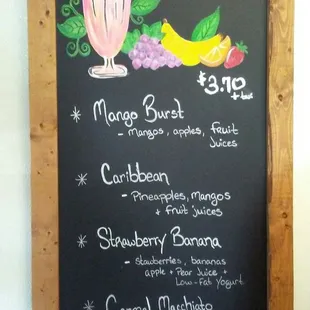 $3.70
+ tax
* Mango Burst
- Mangos, apples, fruit
Juices
* Caribbean
- Pineapples, Mangos
+ fruit juices
* Strawberry Banana
- Stawberries, bananas
apple + Pear Juice +
Low-Fat Yogurt
* Caramel Macchiato